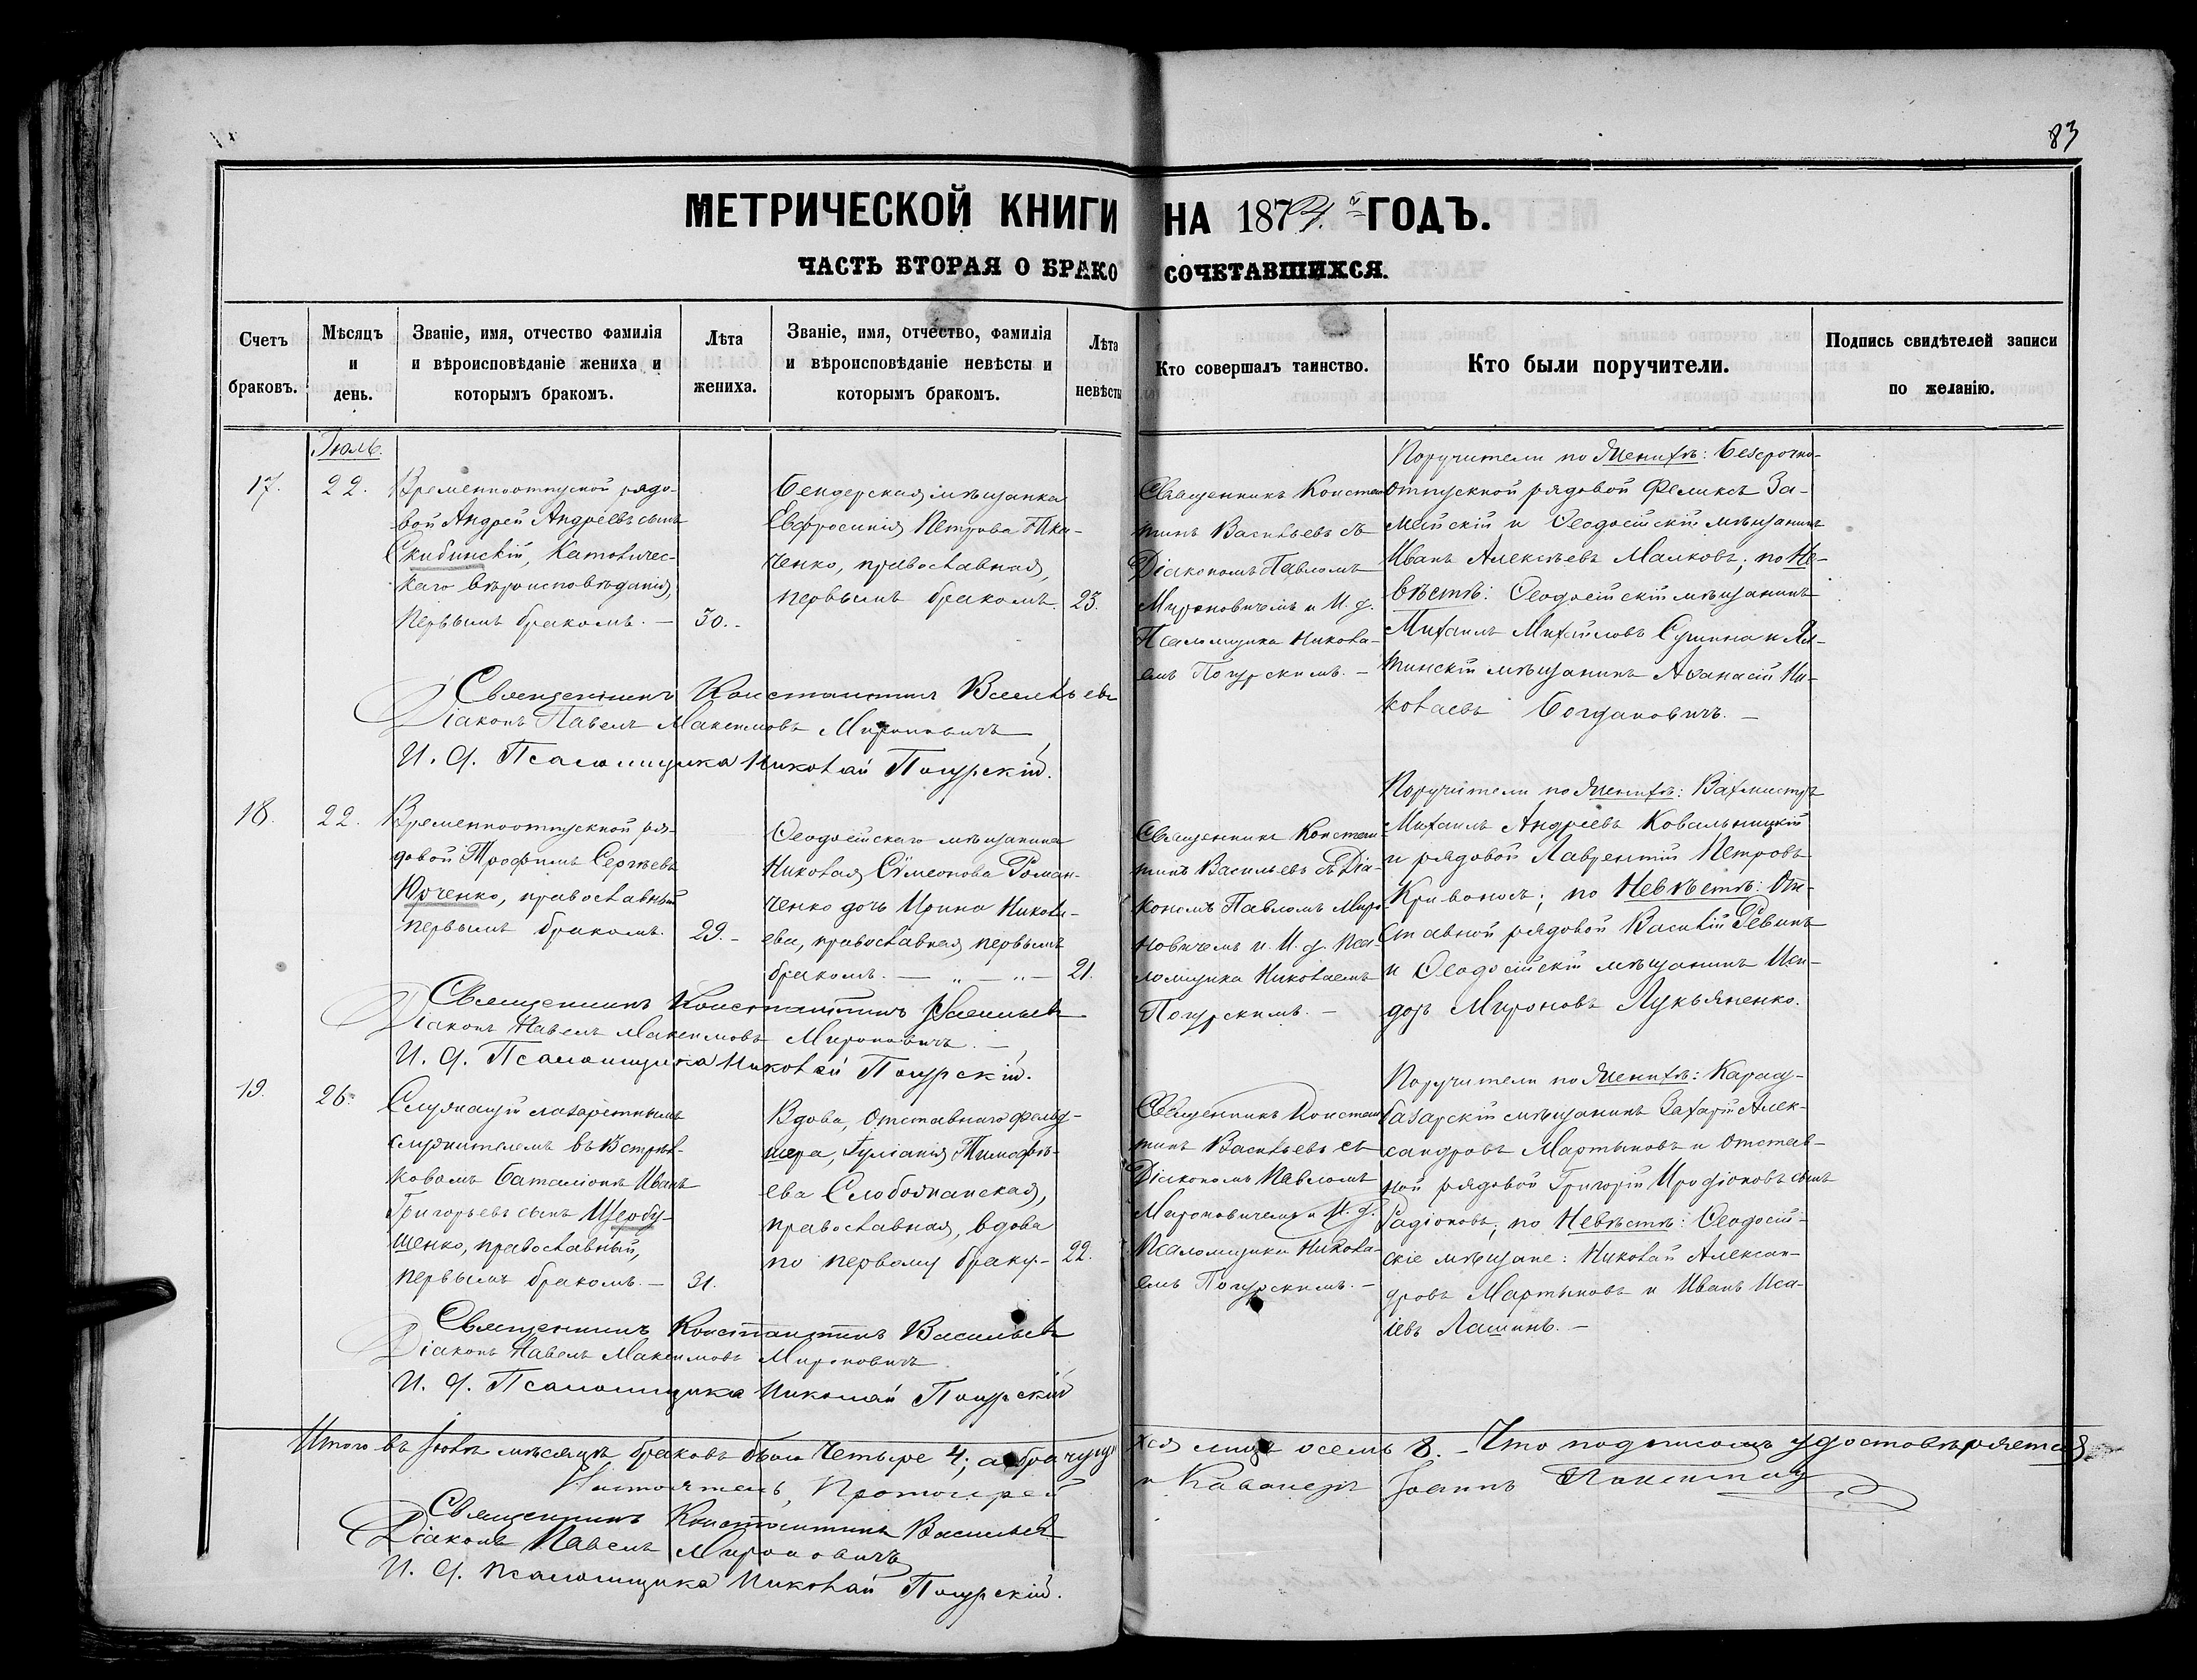 83
МЕТРИЧЕСКОЙ КНИГИ НА 1874.й ГОДЪ.
ЧАСТЬ ВТОРАЯ О БРАКОСОЧЕТАВШИХСЯ.
Счетъ браковъ.
Мѣсяцъ и день.
Званіе, имя, отчество фамилія
и вѣроисповѣданіе жениха и
которымъ бракомъ.
Лѣта жениха.
Званіе, имя, отчество, фамилія
и вѣроисповѣданіе невѣсты и
которымъ бракомъ.
Лѣта невѣсты
Кто совершалъ таинство.
Кто были поручители.
Подпись свидѣтелей записи
по желанію.
Іюль.
17.
22.
Временноотпускной рядо-
вой Андрей Андреевъ сынъ
Скибинскій, Католичес-
каго вѣроисповѣданія,
первымъ бракомъ. —
30. -
Бендерская мѣщанка
Евфросинія Петрова Тка-
ченко, православная,
первымъ бракомъ.
23.
Священникъ Констан-
тинъ Васильевъ съ
Діакономъ Павломъ
Мироновичемъ и И. д.
Псаломщика Никола-
емъ Погурскимъ. —
Поручители по Женихѣ: Безсрочно-
отпускной рядовой Феликсъ За-
мейскій и Ѳеодосійскій мѣщанинъ
Иванъ Алексѣевъ Малковъ; по Не-
вѣстѣ: Ѳеодосійскій мѣщанинъ
Михаилъ Михайловъ Сушина и Ял-
тинскій мѣщанинъ Аѳанасій Ни-
колаевъ Богдановичъ. —
Священникъ Константинъ Васильевъ
Діаконъ Павелъ Максимовъ Мироновичъ
И. д. Псаломщика Николай Погурскій.
18.
22.
Временноотпускной ря-
довой Трофимъ Сергѣевъ
Юрченко, православный
первымъ бракомъ.
29. -
Ѳеодосійскаго мѣщанина
Николая Сѵмеонова Роман-
ченко дочь Ирина Никола-
ева, православная первымъ
бракомъ. — „ — „ —
21.
Священникъ Констан-
тинъ Васильевъ съ Діа-
кономъ Павломъ Миро-
новичемъ и И. д. Пса-
ломщика Николаемъ
Погурскимъ. —
Поручители по Женихѣ: Вахмистръ
Михаилъ Андреевъ Ковальницкій
и рядовой Лаврентій Петровъ
Кривоносъ; по Невѣстѣ: От-
ставной рядовой Василій Ревинъ
и Ѳеодосійскій мѣщанинъ Иси-
доръ Мироновъ Лукьяненко.
Священникъ Константинъ Васильевъ
Діаконъ Павелъ Максимовъ Мироновичъ. —
И. д. Псаломщика Николай Погурскій.
19.
26.
Служащій лазаретнымъ
служителемъ въ Встрѣл-
ковомъ баталіонѣ Иванъ
Григорьевъ сынъ Щербу-
шенко, православный,
первымъ бракомъ. —
31.
Вдова, отставнаго фельд-
шера, Іуліанія Тимофѣ-
ева Слобожанская,
православная, вдова
по первому браку. -
22.
Священникъ Констан-
тинъ Васильевъ съ
Діакономъ Павломъ
Мироновичемъ и И. д.
Псаломщика Никола-
емъ Погурскимъ. —
Поручители по Женихѣ: Карасу-
базарскій мѣщанинъ Захарій Алек-
сандровъ Мартыновъ и отстав-
ной рядовой Григорій Иродіоновъ сынъ
Радіоновъ; по Невѣстѣ: Ѳеодосій-
скіе мѣщане: Николай Алексан-
дровъ Мартыновъ и Иванъ Иса-
іевъ Лашинъ. —
Священникъ Константинъ Васильевъ
Діаконъ Павелъ Максимовъ Мироновичъ
И. д. Псаломщика Николай Погурскій
Итого въ Іюлѣ мѣсяцѣ браковъ было четыре 4; а брачущихся лицъ осемь 8. - Что подписомъ удостовѣряется
Настоятель, Протоіерей и Кавалеръ Іоаннъ
Священникъ Константинъ Васильевъ
Діаконъ Павелъ Мироновичъ
И. д. псаломщика Николай Погурскій.